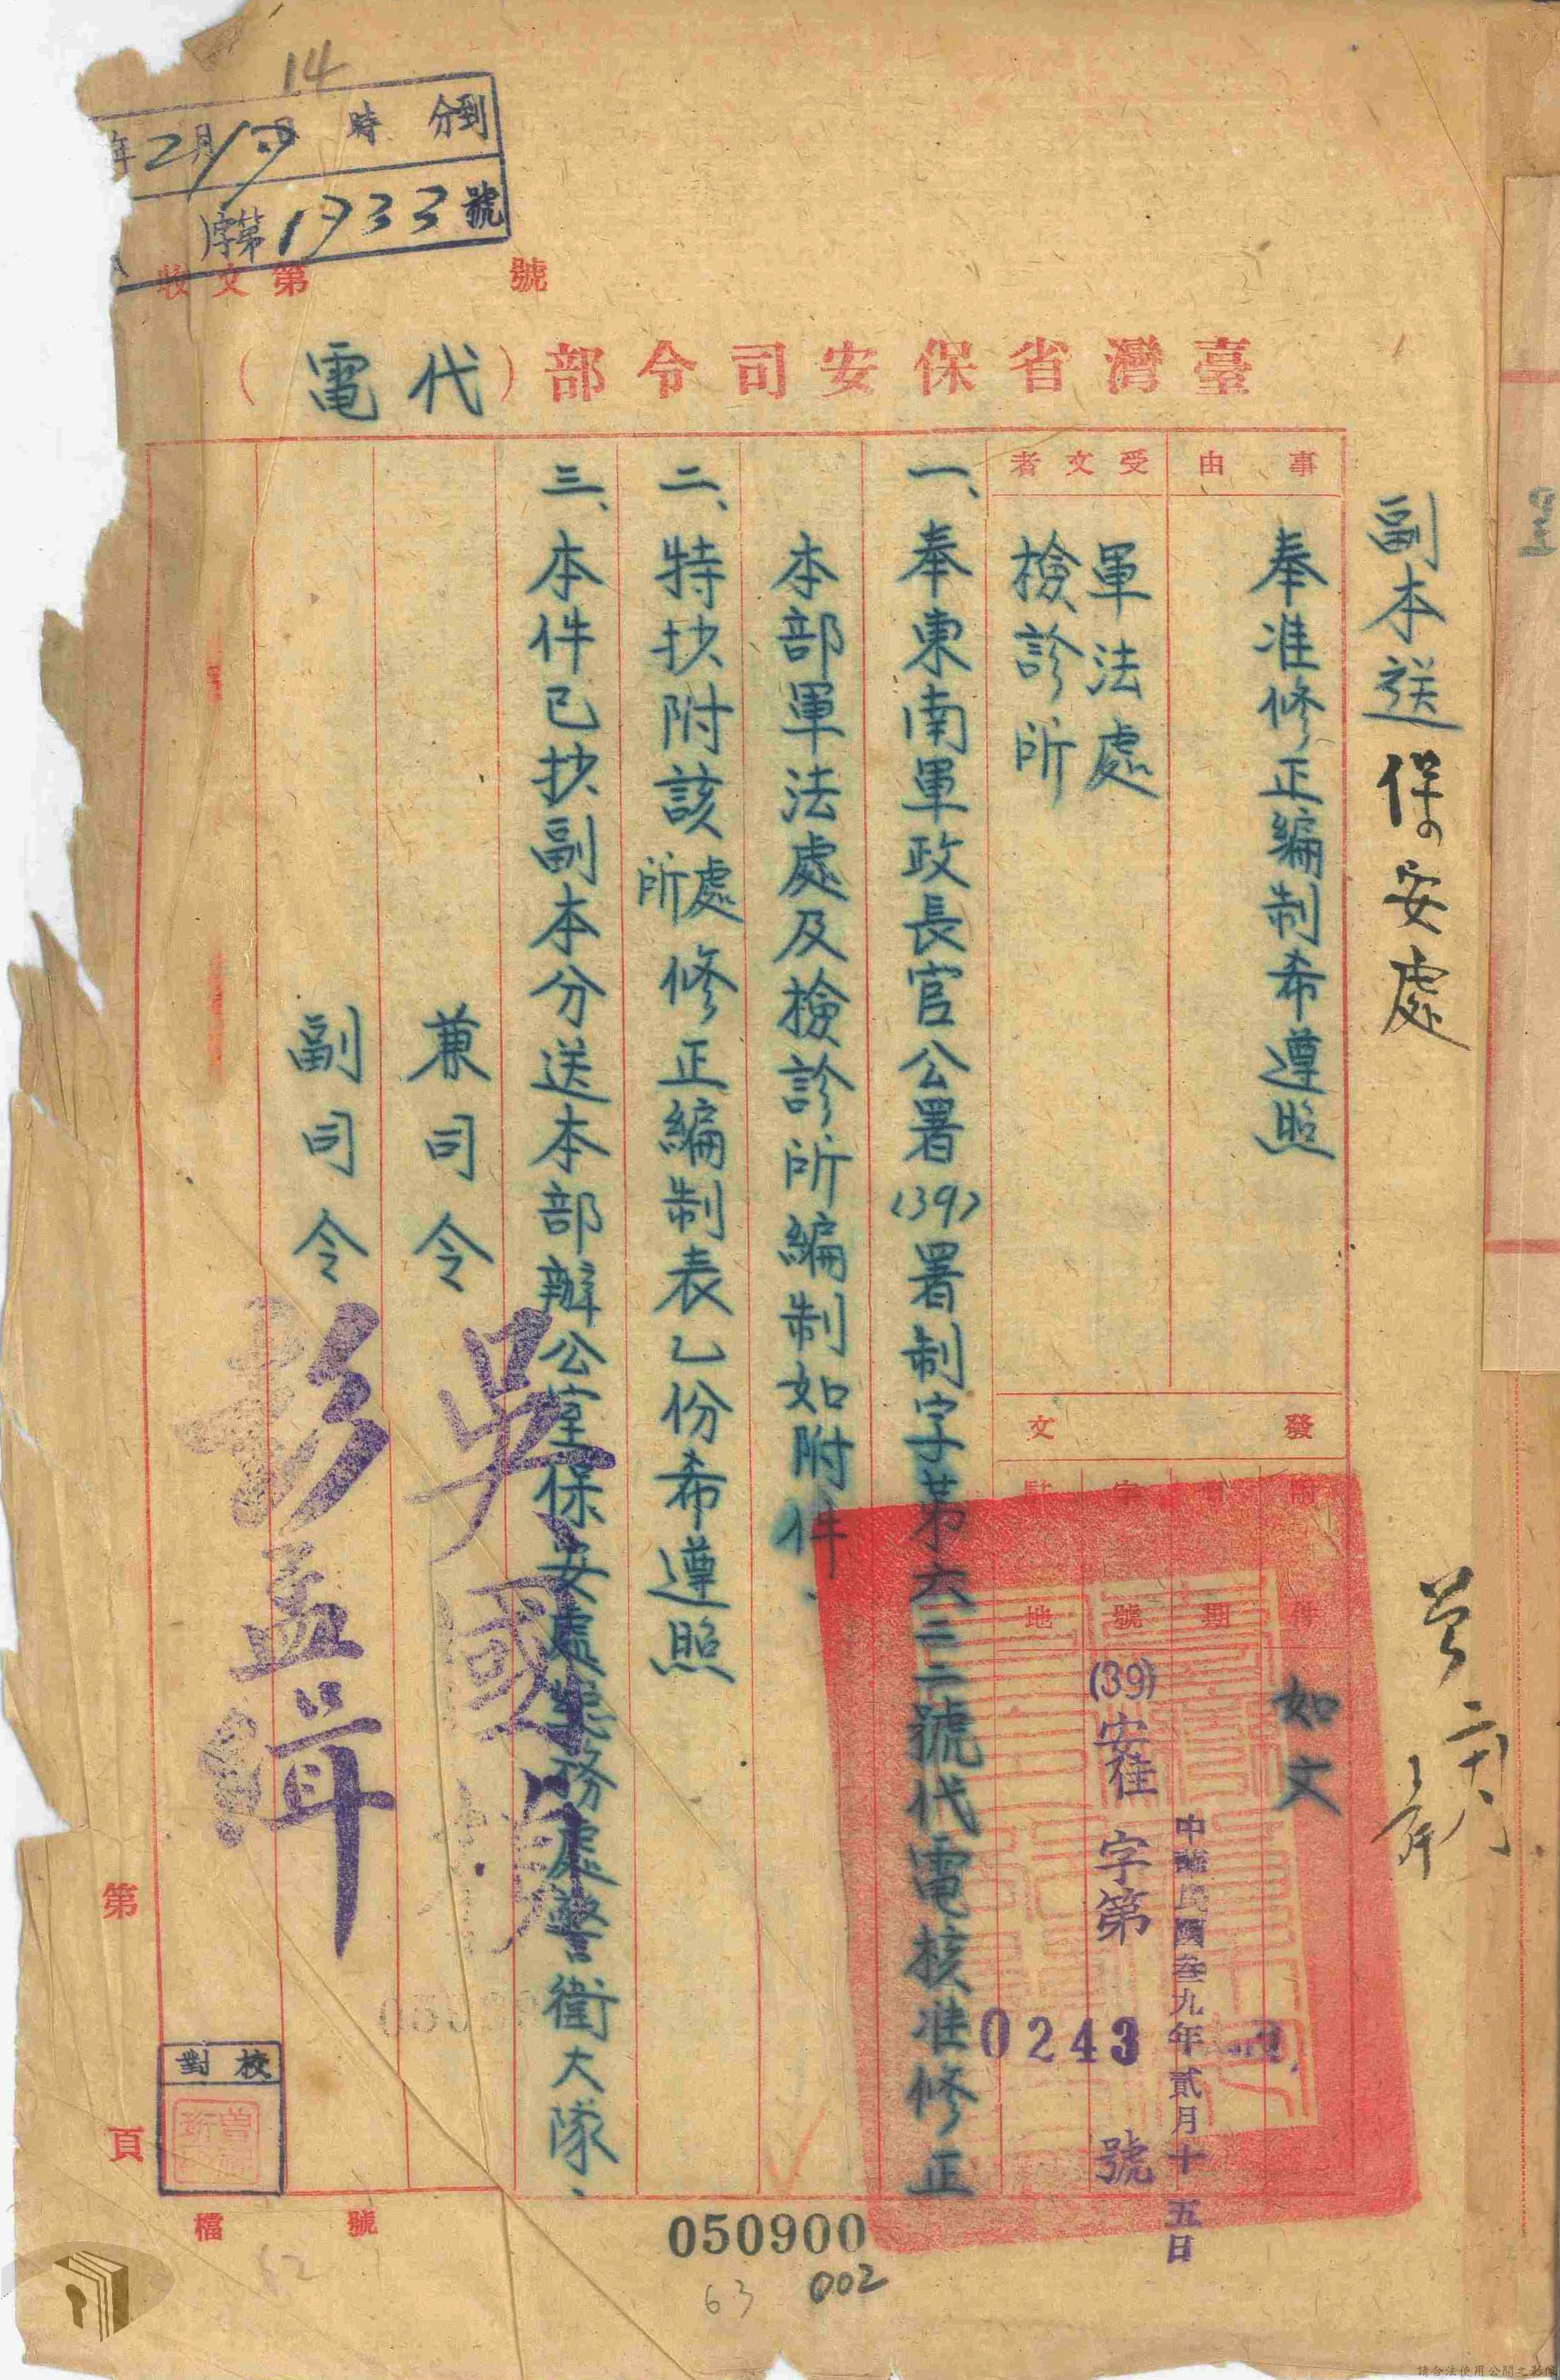 14
年2月17日 時 分到
字第1933號
收文第 號
臺灣省保安司令部(代電)
副本送保安處
事由
奉准修正編制希遵照
受文者
軍法處
檢診所
發文
附件
如文
日期
中華民國叁九年貳月十五日
字號
(39)安往字第0243號
駐地
一、奉東南軍政長官公署(39)署制字第六三二號代電核准修正
本部軍法處及檢診所編制如附件.
二、特抄附該處所修正編制表乙份希遵照
三、本件已抄副本分送本部辦公室保安處總務處警衛大隊.
兼司令 吳國楨
副司令 彭孟緝
校對
第 頁
檔 號
050900
63
002
52
請合法使用公開之影像